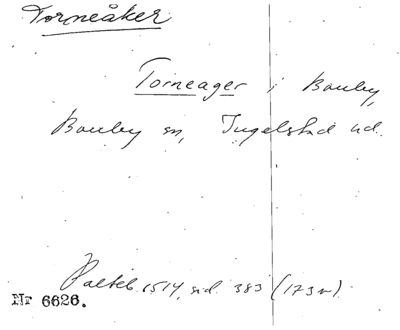 Torneåker
Torneager i Bouby,
Bouby sn, Ingelstad hd.
1514, sid. 383 (173 v)
Nr 6626.